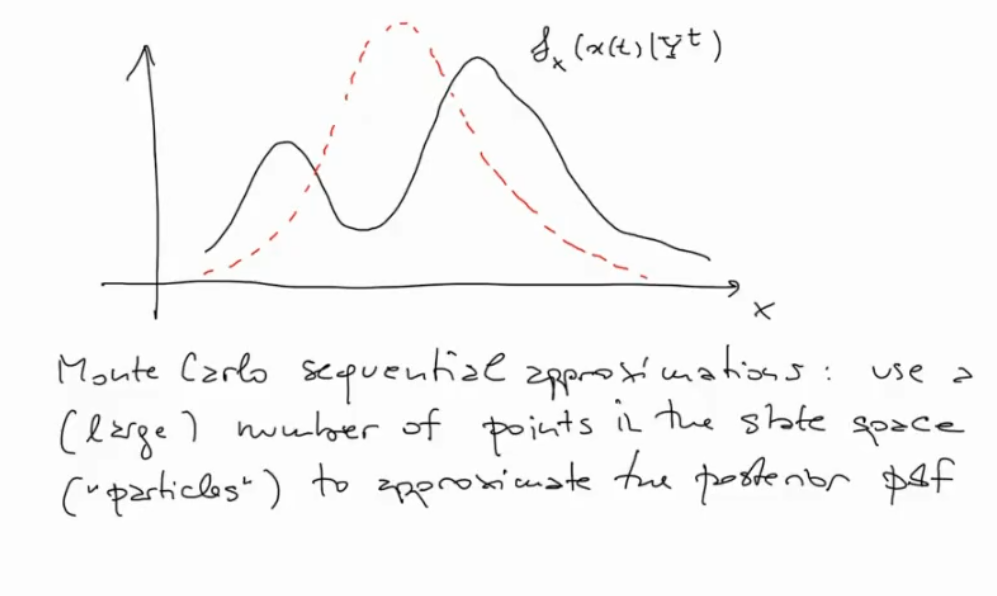 f_x (x(t)|Y^t)
x
Monte Carlo sequential approximations: use a
(large) number of points in the state space
("particles") to approximate the posterior pdf